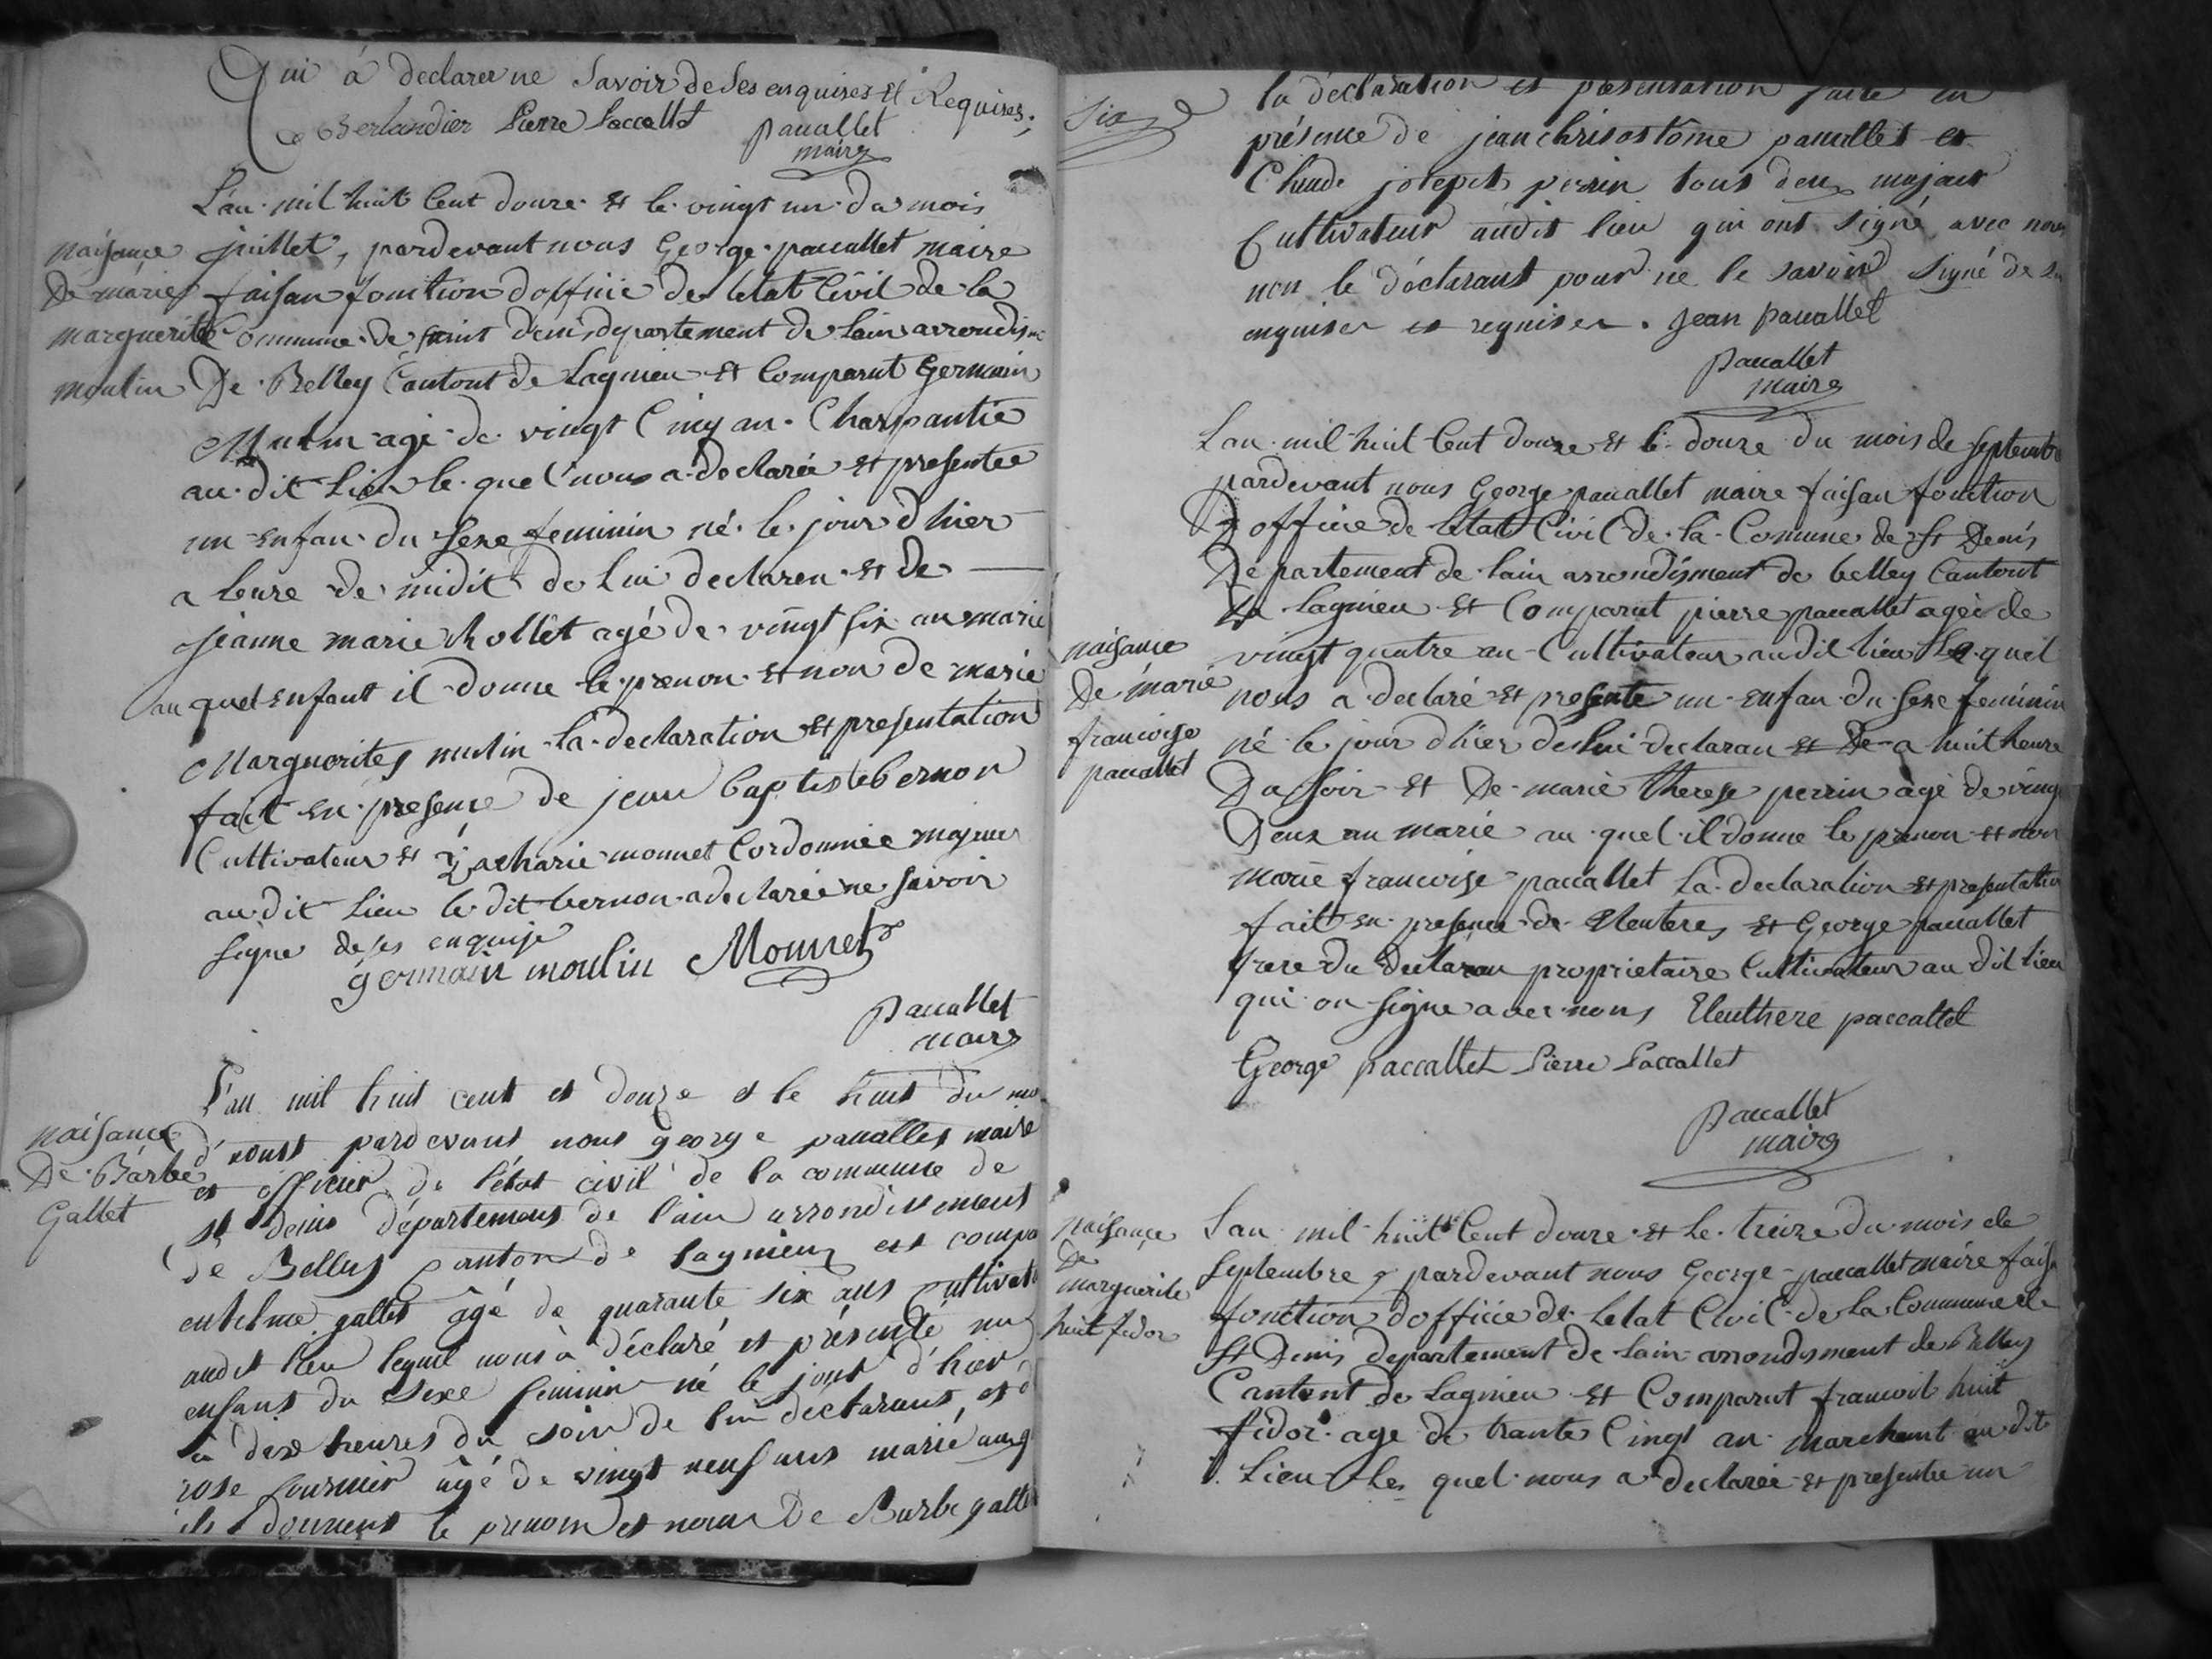 Qui á declarer ne Savoir de Ses enquises Et Requises;
Berlandier Pierre Paccallet
Paccallet
maire
L'an mil huit Cent douze Et le vingt un du mois
naisance
De marie
marguerite
moulin
juillet, pardevant nous George paccallet maire
faisan fonction d'office de letat Civil de la
Commune de saint denis departement de lain arrondism
De Belley Cantont de Lagnieu Et Comparut Germain
Mulin agé de vingt Cinq an Charpantie
au dit Lieu le quel nous a declarée Et presentee
un enfan du Sexe feminin né le jour d'hier
a leure de midit de Lui declaren Et de
jeanne marie hollet agé de vingt six an marie
au quel enfant il donne le prenon Et non de marie
Marguerites mulin la declaration Et presentation
fait en presence de jean baptiste bernon
Cultivateur Et Zacharie monnet Cordonnie majeur
au dit Lieu le dit bernon a declarée ne savoir
signe de ses enquise
germain moulin Monnet
Paccallet
maire
L'an mil huit cent et douze et le huit du mo
naisance
De Barbe
Gallet
d'aoust pardevant nous george paccallet maire
et officier de l'état civil de la commune de
st denis département de l'ain arrondissement
de Belley canton de Lagnieu est compa
entelme gallet âgé de quarante six ans cultivate
audit lieu lequel nous à déclaré et présenté un
enfant du sexe feminin né le jour d'hier
à dix heures du soir de lui déclarant, et d
rose fournier âgé de vingt neuf ans marié auq
ils donnent le prenom et nom De Barbe gallet
Six
la déclaration et présentation faite en
présence de jean chrisostôme paccallet et
Claude joseph perrin tous deux majeur
Cultivateur audit lieu qui ont signé avec nous
non le déclarant pour ne le savoir signé de
enquiser et requiser. Jean paccallet
Paccallet
maire
Lan mil huit Cent douze Et le douze du mois de septembre
pardevant nous George paccallet maire faisan fonction
D'office de letat Civil de la Comune de St Denis
Departement de lain arrondisment de belley Cantont
de Lagnieu Et Comparut pierre paccallet ageé de
naisance
De marie
francoise
paccallet
vingt quatre an Cultivateur au dit lieu Le quel
nous a declaré Et presente un enfan du Sexe feminin
né le jour d'hier de lui declaran Et De a huit heure
Du soir Et De marie therese perrin agé de ving
Deux an marie au quel il donne le prenon Et non
marie francoise paccallet La declaration Et presentation
fait en presence de Eleuteres Et George paccallet
frere du declaran proprietaire Cultivateur au dit lieu
qui on signe avec nous Eleuthere paccallet
George paccallet Pierre Paccallet
Paccallet
maire
naisance
De
marguerite
huit fidor
Lan mil huit Cent douze Et le treize du mois de
Septembre pardevant nous George paccallet maire fais
fonction d'office de letat Civil de la Commune de
St Denis departement de lain arrondisment de Belley
Cantont de Lagnieu Et Comparut francoit huit
fidor age de trante Cinq an marchant au dit
Lieu Les quel nous a declarée Et presentee un